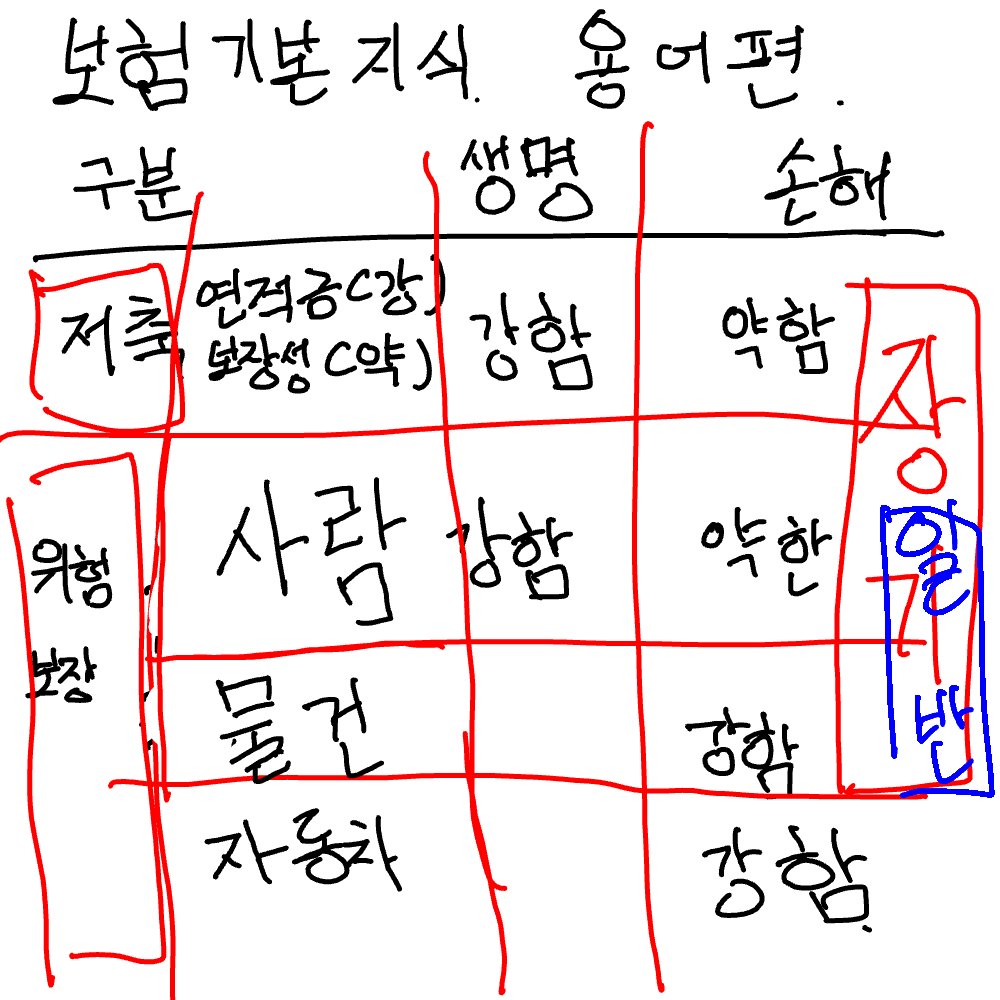 보험 기본 지식. 용어편.
구분 생명 손해
저축 연적금(강) 강함 약함
보장성(약)
위험 보장 사람 강함 약한
물건 강함
자동차 강함.
장기
일반